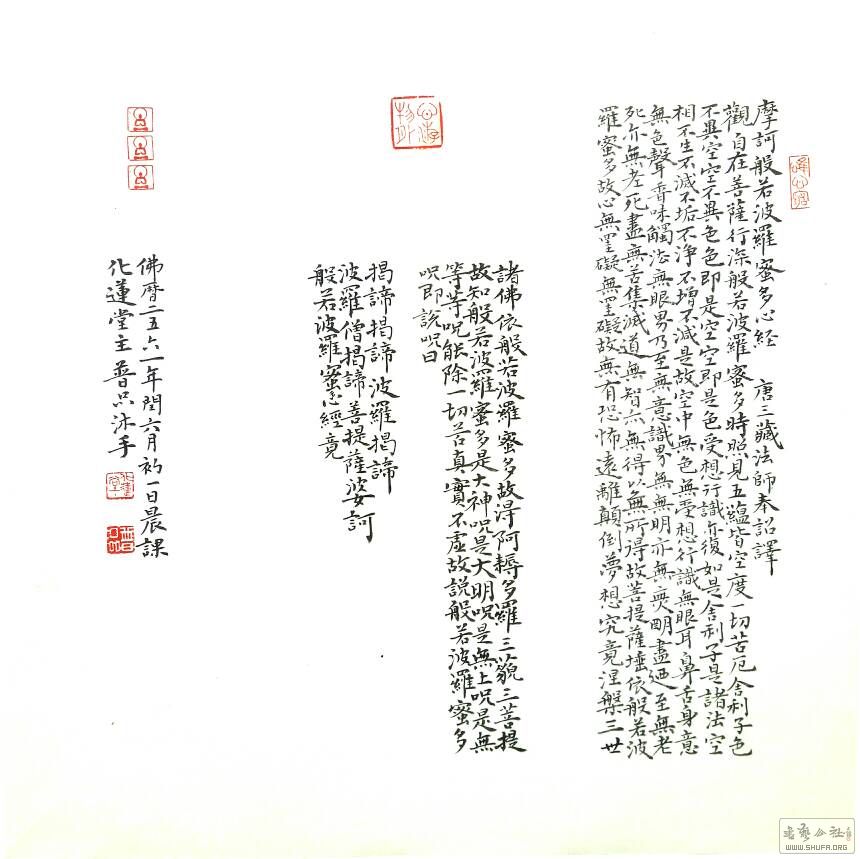 摩訶般若波羅蜜多心經 唐三藏法師奉詔譯
觀自在菩薩行深般若波羅蜜多時照見五蘊皆空度一切苦厄舍利子色
不異空空不異色色即是空空即是色受想行識亦復如是舍利子是諸法空
相不生不滅不垢不净不增不減是故空中無色無受想行識無眼耳鼻舌身意
無色聲香味觸法無眼界乃至無意識界無無明亦無無明盡迺至無老
死亦無老死盡無苦集滅道無智亦無得以無所得故菩提薩埵依般若波
羅蜜多故心無罣礙無罣礙故無有恐怖遠離顛倒夢想究竟涅槃三世
諸佛依般若波羅蜜多故得阿耨多羅三藐三菩提
故知般若波羅蜜多是大神呪是大明呪是無上呪是無
等等呪能除一切苦真實不虛故説般若波羅蜜多
呪即説呪曰
揭諦揭諦波羅揭諦
波羅僧揭諦菩提薩婆訶
般若波羅蜜心經竟
佛曆二五六一年閏六月初一日晨課
化蓮堂主普品沐手
書藝公社
WWW.SHUFA.ORG